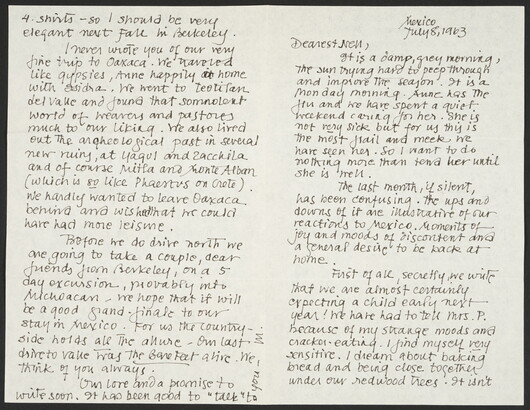 4. shirts - so I should be very
elegant next Fall in Berkeley.
I never wrote you of our very
fine trip to Oaxaca. We traveled
like gypsies, Anne happily at home
with Esidra. We went to Teotitlan
del Valle and found that somnolent
world of weavers and pastores
much to our liking. We also lived
out the archeological past in several
new ruins, at Yagul and Zacchila
and of course Mitla and Monte Alban
(which is so like Phaestus on Crete).
We hardly wanted to leave Oaxaca
behind and wished that we could
have had more leisure.
Before we do drive north we
are going to take a couple, dear
friends from Berkeley, on a 5
day excursion, probably into
Michoacan - we hope that it will
be a good grand-finale to our
stay in Mexico. For us the country-
side holds all the allure - our last
drive to Valle was The Bare Feet alive. We
think of you always.
Our love and a promise to
write soon. It has been good to "talk" to
you
M.
Mexico
July 8, 1963
Dearest Nell,
It is a damp, grey morning,
the sun trying hard to peep through
and improve the season. It is a
Monday morning. Anne has the
flu and we have spent a quiet
weekend caring for her. She is
not very sick but for us this is
the most frail and meek we
have seen her. So I want to do
nothing more than tend her until
she is well.
The last month, if silent,
has been confusing. The ups and
downs of it are illustrative of our
reactions to Mexico. Moments of
joy and moods of discontent and
a general desire to be back at
home.
First of all, secretly, we write
that we are almost certainly
expecting a child early next
year! We have had to tell Mrs. P.
because of my strange moods and
cracker-eating. I find myself very
sensitive. I dream about baking
bread and being close together
under our redwood trees. It isn't